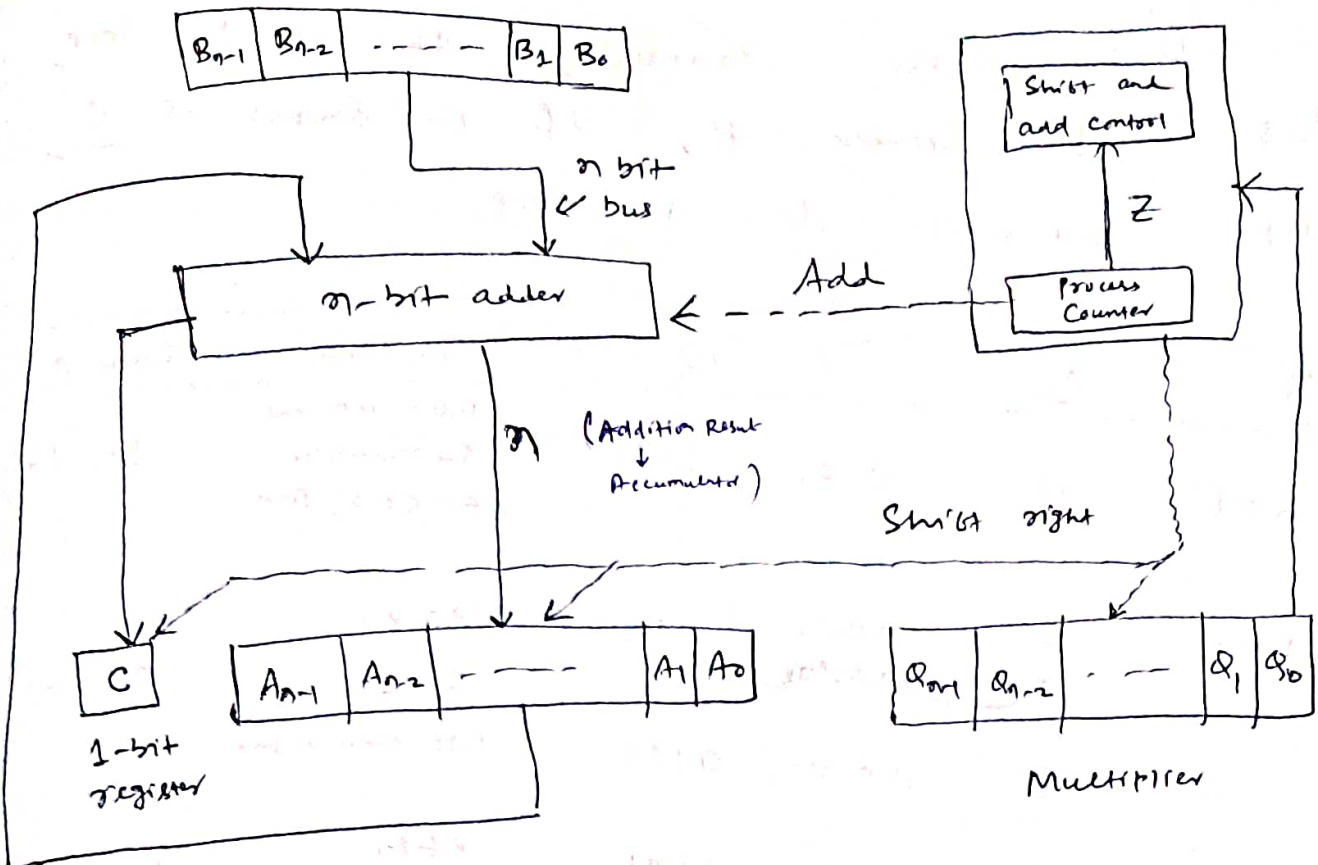 Bn-1 Bn-2 - - - - B1 B0
Shift and
add control
n bit
bus
Z
n-bit adder
Add
Process
Counter
n
(Addition Result
↓
Accumulator)
Shift right
C
An-1 An-2 - - - - A1 A0
Qn-1 Qn-2 - - - Q1 Q0
1-bit
register
Multiplier